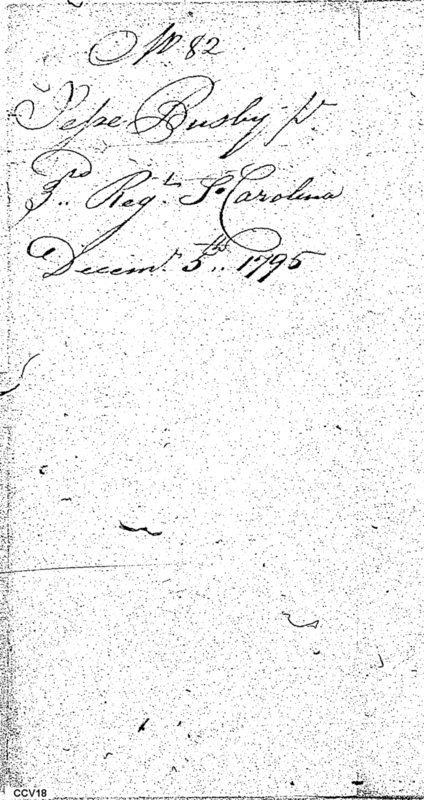 No 82
Jesse Busby pr
3rd Regt So Carolina
Decemr 5th 1795
CCV18